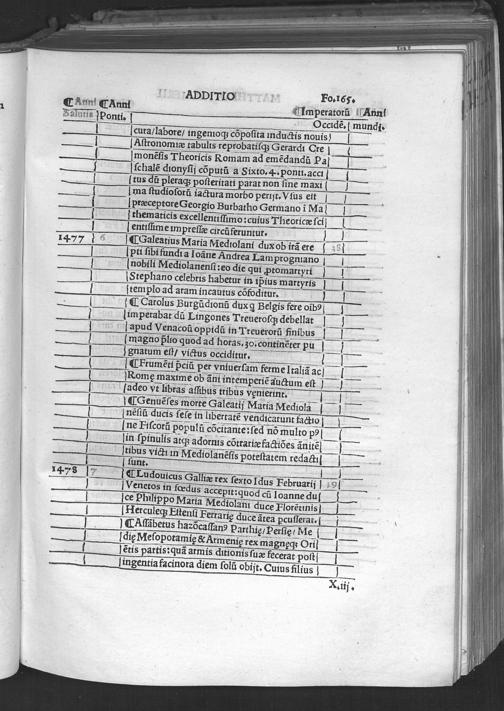 ADDITIO Fo.165.
¶Anni ¶Anni ¶Imperatorū ¶Anni
Salutis Ponti. Occidē. mundi.
cura/labore/ ingenioqȝ cōposita inductis nouis
Astronomiæ tabulis reprobatisqȝ Gerardi Cre
monēsis Theoricis Romam ad emēdandū Pa
schalē dionysij cōputū a Sixto.4.ponti.acci
tus dū pleraqȝ posteritati parat non sine maxi
ma studiosorū iactura morbo perijt. Vsus est
præceptore Georgio Burbatho Germano i Ma
thematicis excellentissimo: cuius Theoricæ sci
entissime impressæ circūferuntur.
1477 6 ¶Galeatius Maria Mediolani dux ob irā ere 38
pti sibi fundi a Ioāne Andrea Lamprogniano
nobili Mediolanensi: eo die qui protomartyri
Stephano celebris habetur in ipius martyris
templo ad aram incautus cōfoditur.
¶ Carolus Burgūdionū dux q Belgis fere oibꝰ
imperabat dū Lingones Treuerosqȝ debellat
apud Venacoū oppidū in Treuerorū finibus
magno p̄lio quod ad horas.30.continēter pu
gnatum est/ victus occiditur.
¶Frumēti p̄ciū per vniuersam ferme Italiā ac
Romę maxime ob āni intemperiē auctum est
adeo vt libras assibus tribus venierint.
¶Genuēses morte Galeatij Maria Mediola
nēsiū ducis sese in libertatē vendicarunt factio
ne Fiscorū populū cōcitante: sed nō multo pꝰ
in spinulis atqȝ adornis cōtrariæ factiōes ānitē
tibus victi in Mediolanēsis potestatem redacti
sunt.
1478 7 ¶Ludouicus Galliæ rex sexto Idus Februarij 39
Venetos in fœdus accepit: quod cū Ioanne du
ce Philippo Maria Mediolani duce Florētinis
Herculeqȝ Estensi Ferrarię duce ātea pcusserat.
¶Assābetus hazōcassanꝰ Parthię/ Persię/ Me
dię Mesopotamię & Armenię rex magnęqȝ Ori
ētis partis: quā armis ditionis suæ fecerat post
ingentia facinora diem solū obijt. Cuius filius
X.iij.